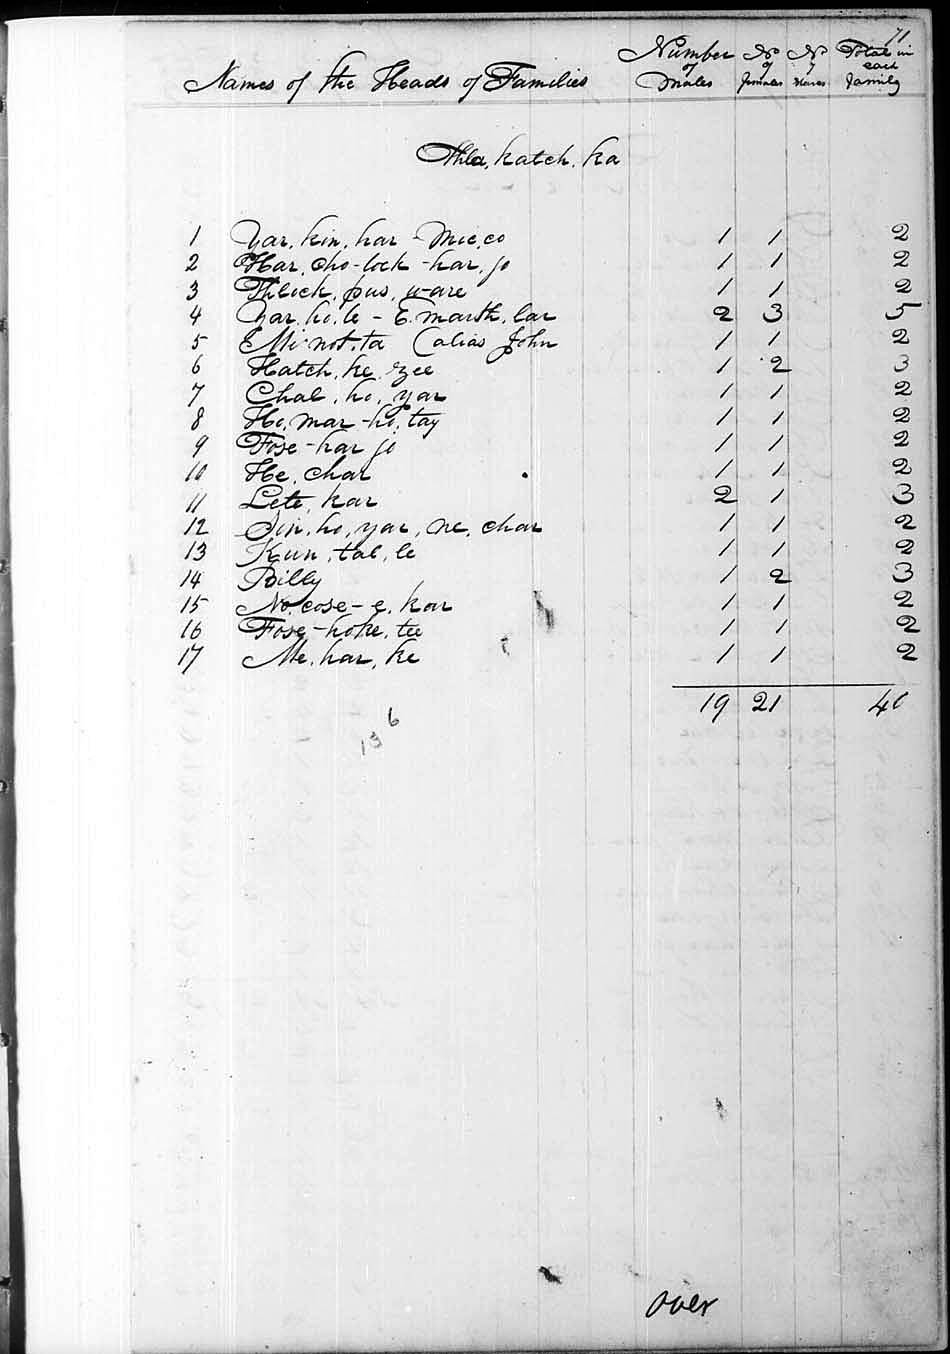 71
Names of the Heads of Families Number of Males No of females No of slaves Total in each family
Thla, katch, ka
1 Yar, kin, har - Mic,co 1 1 2
2 Har, cho-lock-har, jo 1 1 2
3 Thlock, pus, ware 1 1 2
4 Yar, ho, le - E. marth, lar 2 3 5
5 Mi-not, ta (alias John 1 1 2
6 Hatch, ke, zee 1 2 3
7 Chal, ho, yar 1 1 2
8 Ho, mar-ho, tay 1 1 2
9 Fose-har jo 1 1 2
10 He, char 1 1 2
11 Lete, kar 2 1 3
12 Sin, ho, yar, ne, char 1 1 2
13 Kun, tal, le 1 1 2
14 Billy 1 2 3
15 No, cose-e, kar 1 1 2
16 Fose-hoke, tee 1 1 2
17 Me, har, ke 1 1 2
19 21 40
136
over